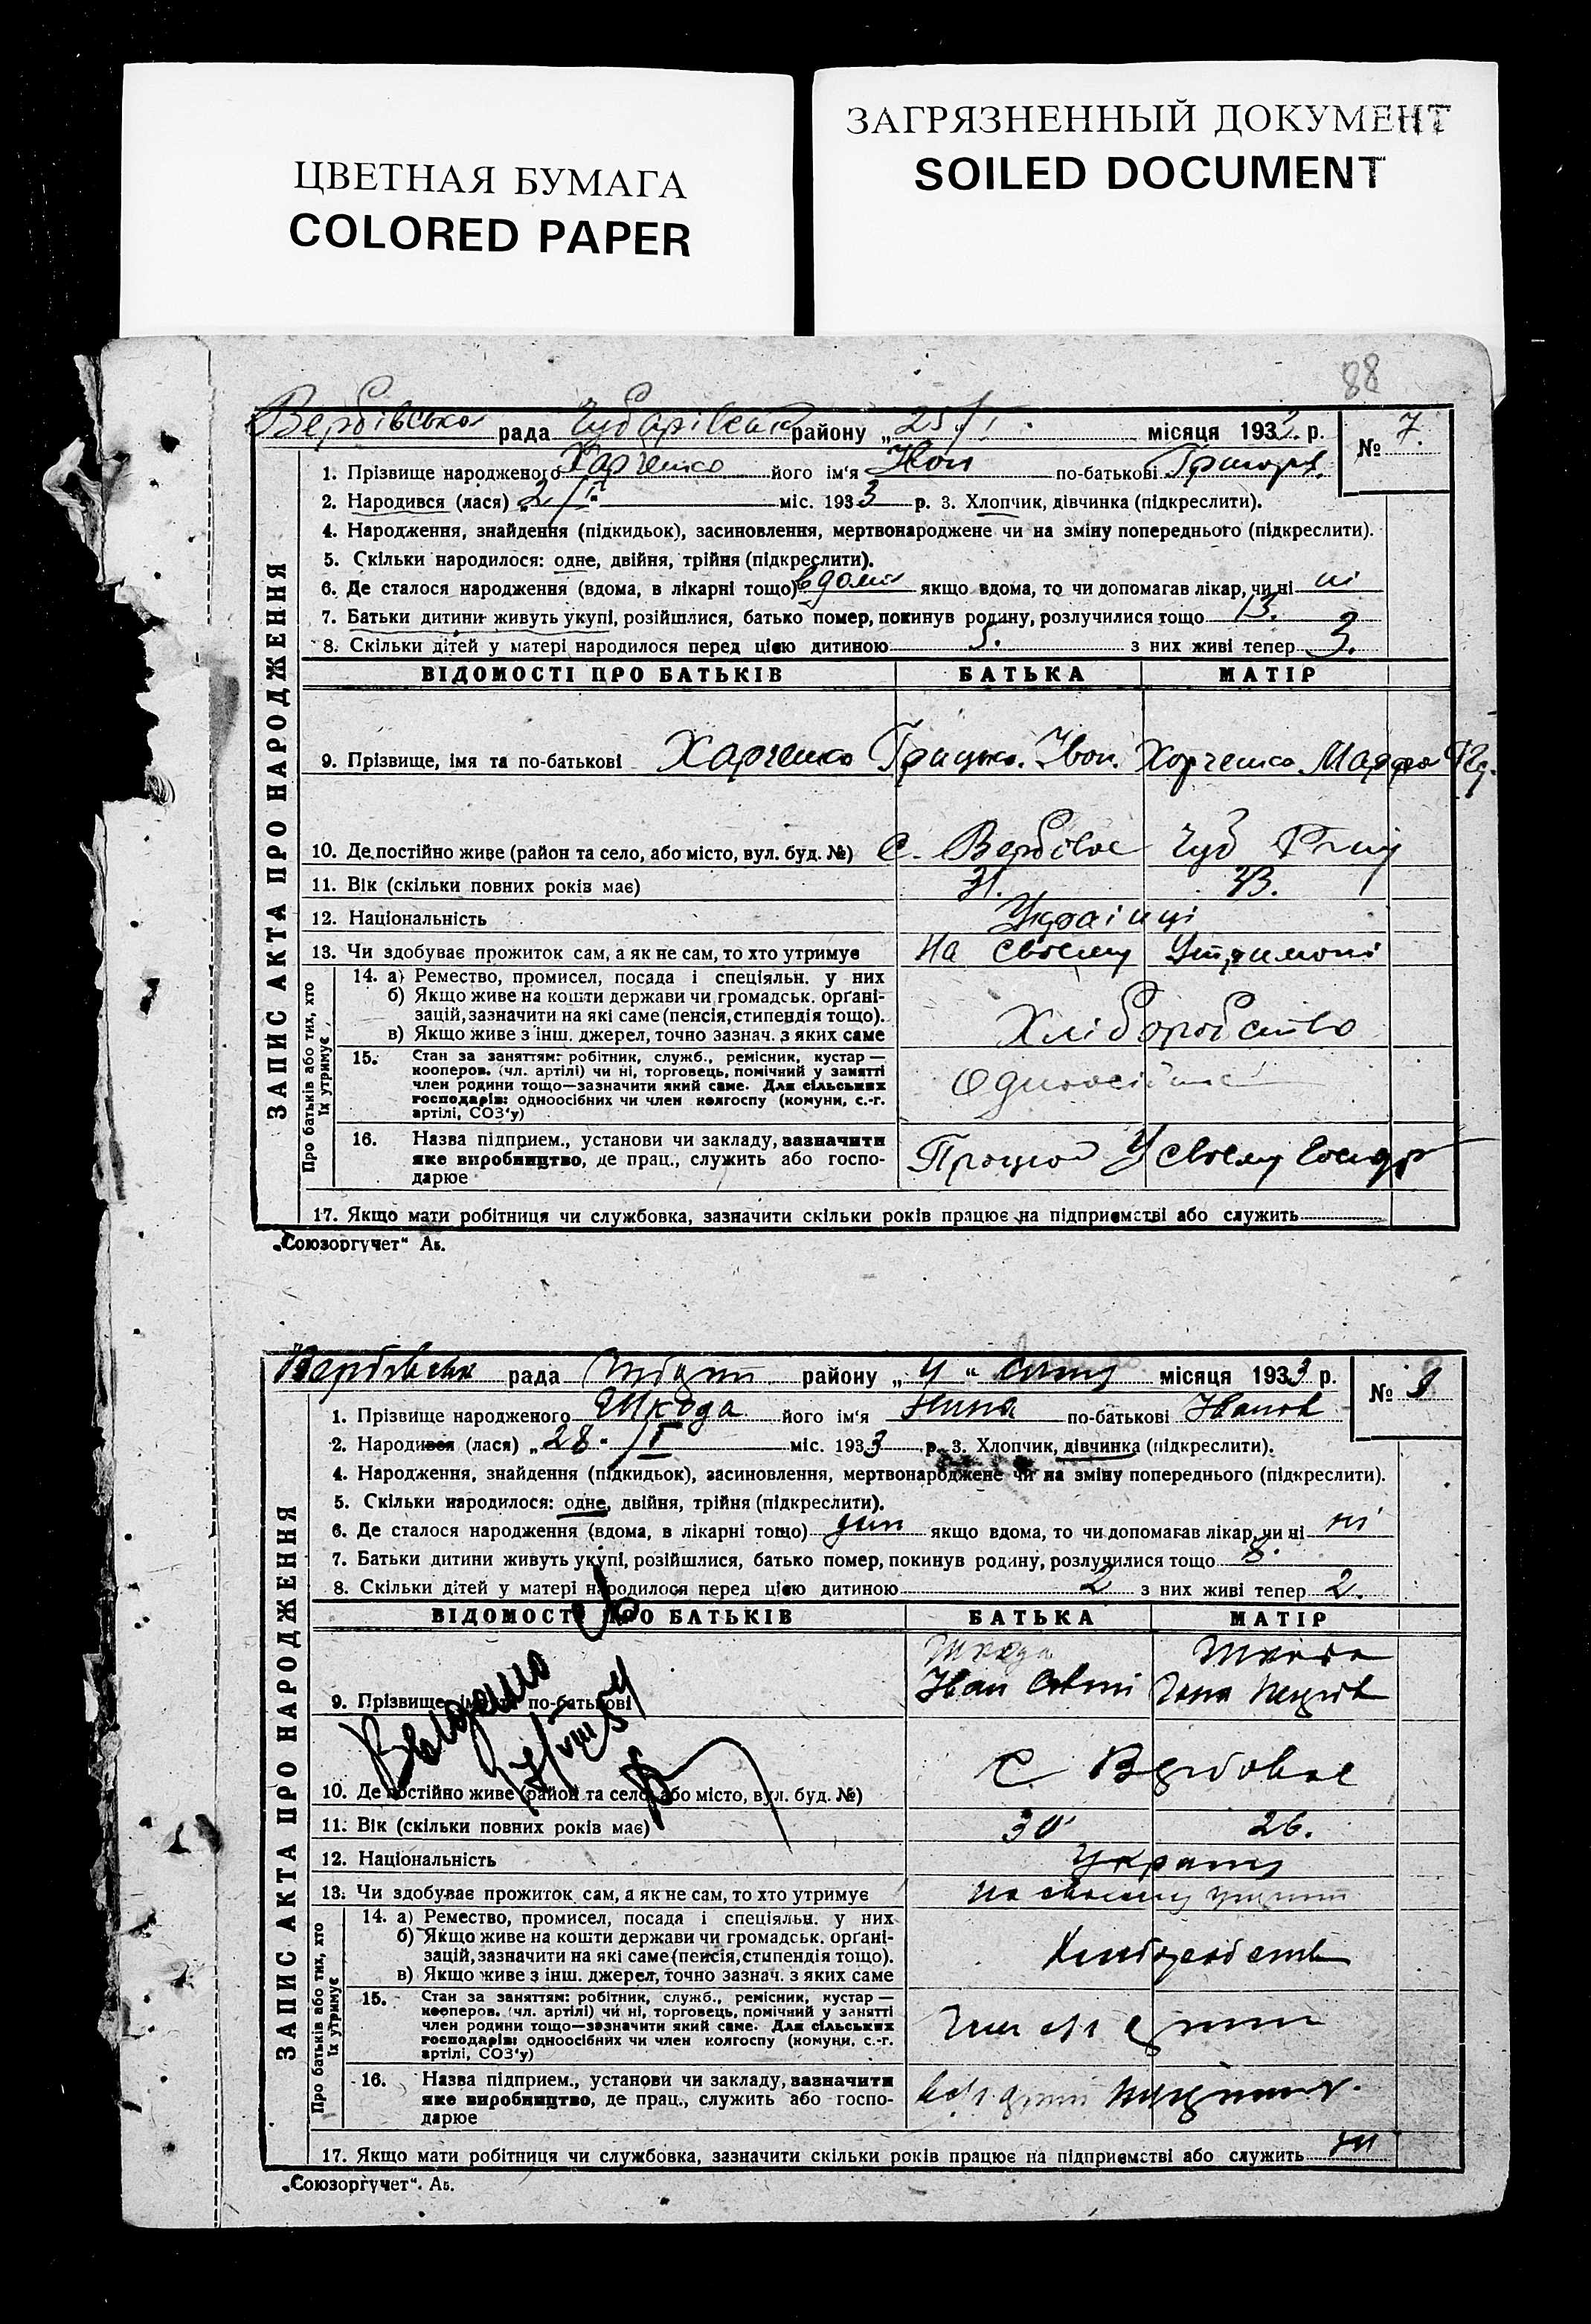 ЦВЕТНАЯ БУМАГА
COLORED PAPER
ЗАГРЯЗНЕННЫЙ ДОКУМЕНТ
SOILED DOCUMENT
88
Вербівська рада району „25/I місяця 1933 р. № 7.
1. Прізвище народженого Харченко його ім'я Іван по-батькові Григор.
2. Народився (лася) „2/I міс. 1933 р. 3. Хлопчик, дівчинка (підкреслити).
4. Народження, знайдення (підкидьок), засиновлення, мертвонароджене чи на зміну попереднього (підкреслити).
5. Скільки народилося: одне, двійня, трійня (підкреслити).
6. Де сталося народження (вдома, в лікарні тощо) вдома якщо вдома, то чи допомагав лікар, чи ні ні
7. Батьки дитини живуть укупі, розійшлися, батько помер, покинув родину, розлучилися тощо 13.
8. Скільки дітей у матері народилося перед цією дитиною 5. з них живі тепер 3.
ЗАПИС АКТА ПРО НАРОДЖЕННЯ
ВІДОМОСТІ ПРО БАТЬКІВ БАТЬКА МАТІР
9. Прізвище, імя та по-батькові Харченко Грицько Іван. Харченко Марфа
10. Де постійно живе (район та село, або місто, вул. буд. №) С. Вербове Чуб
11. Вік (скільки повних років має) 31. 33.
12. Національність Українці
13. Чи здобуває прожиток сам, а як не сам, то хто утримує На своєму утримані
Про батьків або тих, хто їх утримує
14. а) Ремество, промисел, посада і спеціяльн. у них
б) Якщо живе на кошти держави чи громадськ. органі-
зацій, зазначити на які саме (пенсія, стипендія тощо).
в) Якщо живе з інш. джерел, точно зазнач. з яких саме
Хліборобство
15. Стан за заняттям: робітник, служб., ремісник, кустар —
кооперов. (чл. артілі) чи ні, торговець, помічний у занятті
член родини тощо—зазначити який саме. Для сільських
господарів: одноосібних чи член колгоспу (комуни, с.-г.
артілі, СОЗ'у)
16. Назва підприєм., установи чи закладу, зазначити
яке виробництво, де прац., служить або госпо-
дарюе
Працює У своєму
17. Якщо мати робітниця чи службовка, зазначити скільки років працює на підприємстві або служить
„Союзоргучет" Аб.
Вербівська рада району „4" місяця 1933 р. № 8
1. Прізвище народженого Шкода його ім'я Нина по-батькові Іванов
2. Народився (лася) „28. /I міс. 1933 р. 3. Хлопчик, дівчинка (підкреслити).
4. Народження, знайдення (підкидьок), засиновлення, мертвонароджене чи на зміну попереднього (підкреслити).
5. Скільки народилося: одне, двійня, трійня (підкреслити).
6. Де сталося народження (вдома, в лікарні тощо) якщо вдома, то чи допомагав лікар, чи ні ні
7. Батьки дитини живуть укупі, розійшлися, батько помер, покинув родину, розлучилися тощо 8.
8. Скільки дітей у матері народилося перед цією дитиною 2 з них живі тепер 2.
ЗАПИС АКТА ПРО НАРОДЖЕННЯ
ВІДОМОСТІ ПРО БАТЬКІВ БАТЬКА МАТІР
Шкода Шкода
9. Прізвище, імя та по-батькові Іван
Выдано
10. Де постійно живе (район та село, або місто, вул. буд. №) С. Вербовое
11. Вік (скільки повних років має) 30 26.
12. Національність
13. Чи здобуває прожиток сам, а як не сам, то хто утримує На своєму
Про батьків або тих, хто їх утримує
14. а) Ремество, промисел, посада і спеціяльн. у них
б) Якщо живе на кошти держави чи громадськ. органі-
зацій, зазначити на які саме (пенсія, стипендія тощо).
в) Якщо живе з інш. джерел, точно зазнач. з яких саме
15. Стан за заняттям: робітник, служб., ремісник, кустар —
кооперов. (чл. артілі) чи ні, торговець, помічний у занятті
член родини тощо—зазначити який саме. Для сільських
господарів: одноосібних чи член колгоспу (комуни, с.-г.
артілі, СОЗ'у)
16. Назва підприєм., установи чи закладу, зазначити
яке виробництво, де прац., служить або госпо-
дарюе
17. Якщо мати робітниця чи службовка, зазначити скільки років працює на підприємстві або служить
„Союзоргучет". Аб.